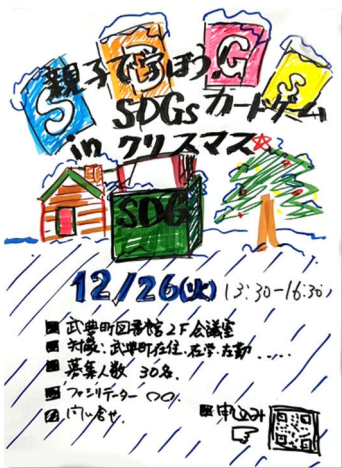 SDGs
親子で学ぼう!
SDGsカードゲーム
in クリスマス☆
SDG
12/26(火) 13:30-16:30
■ 武豊町図書館2F会議室
■ 対象:武豊町在住、在学、在勤.....
■ 募集人数 30名.
■ ファシリテーター 〇〇.
■ 問い合せ.
■ 申し込み